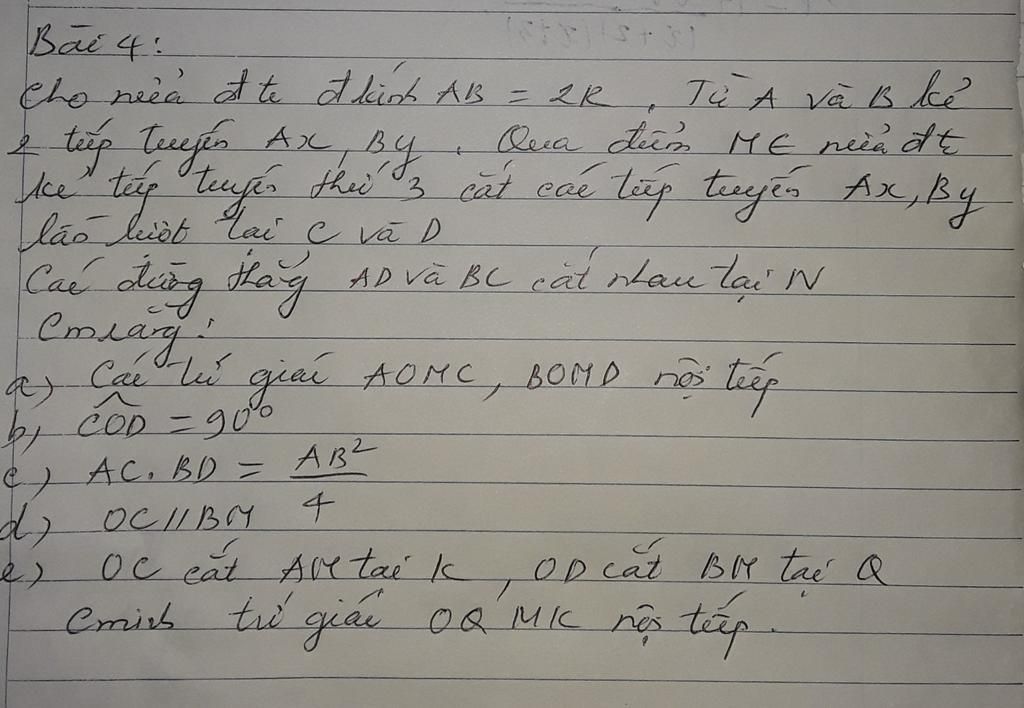 Bài 4:
Cho nửa đtr đkính AB = 2R. Từ A và B kẻ
2 tiếp tuyến Ax, By. Qua điểm M ∈ nửa đtr
kẻ tiếp tuyến thứ 3 cắt các tiếp tuyến Ax, By
lần lượt tại C và D
Các đường thẳng AD và BC cắt nhau tại N
Cm rằng:
a) Các tứ giác AOMC, BOMD nội tiếp
b) \widehat{COD} = 90°
c) AC.BD = \frac{AB^2}{4}
d) OC // BM
e) OC cắt AM tại K, OD cắt BM tại Q
Cminh tứ giác OQMK nội tiếp.